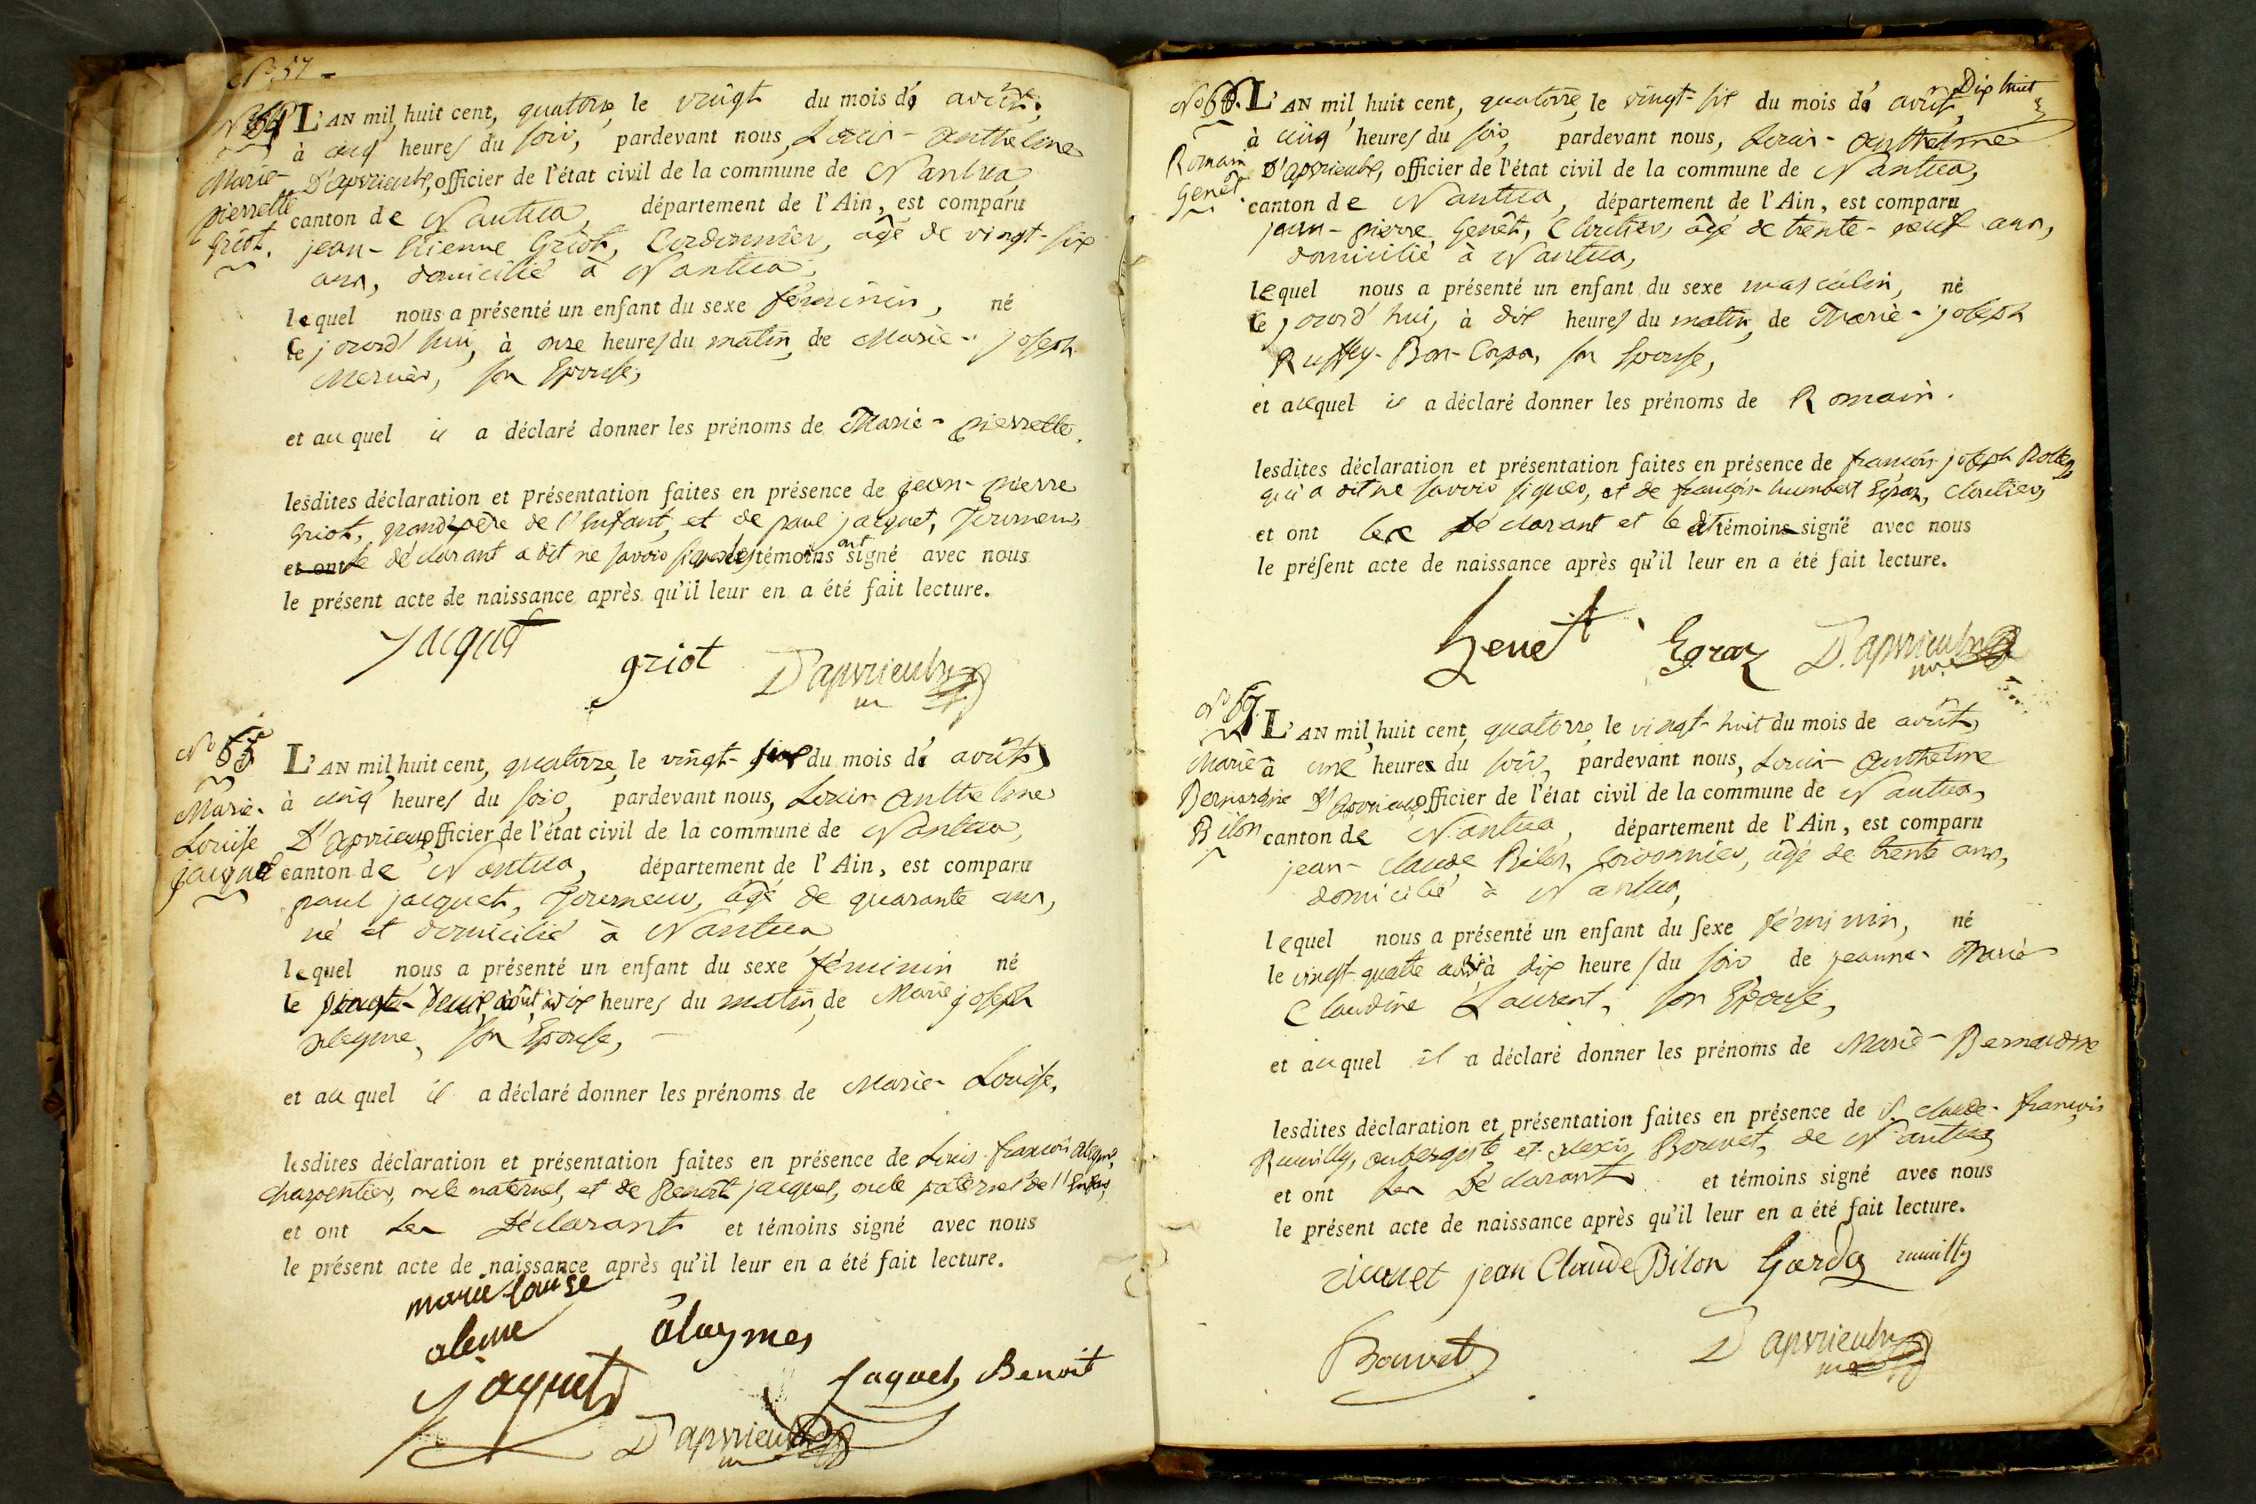 N° 64
Marie-
pierrette
Griot.
L'AN mil huit cent, quatorze, le vingt du mois de août,
à cinq heures du soir, pardevant nous, Louis-Anthelme
D'apvrieulx, officier de l'état civil de la commune de Nantua,
canton de Nantua, département de l'Ain, est comparu
jean-Etienne Griot, Cordonnier, âgé de vingt-six
ans, domicilié à Nantua,
lequel nous a présenté un enfant du sexe féminin, né
le jourd'hui, à onze heures du matin, de Marie-joseph
Mernier, son Epouse,
et auquel il a déclaré donner les prénoms de Marie-pierrette.
lesdites déclaration et présentation faites en présence de jean-pierre
Griot, grand père de l'Enfant, et de paul jacquet, Tourneur,
et ont le déclarant a dit ne savoir signer les témoins ont signé avec nous
le présent acte de naissance après qu'il leur en a été fait lecture.
Jacquet
griot D'apvrieulx
N° 65
Marie-
Louise
jacquet
L'AN mil huit cent, quatorze, le vingt- du mois de août,
à cinq heures du soir, pardevant nous, Louis Anthelme
D'apvrieulx officier de l'état civil de la commune de Nantua,
canton de Nantua, département de l'Ain, est comparu
paul jacquet, Tourneur, âgé de quarante ans,
né et domicilié à Nantua
lequel nous a présenté un enfant du sexe féminin né
le vingt-deux août, à dix heures du matin, de Marie joseph
aleyme, son Epouse,
et auquel il a déclaré donner les prénoms de Marie-Louise,
lesdites déclaration et présentation faites en présence de Louis-françois aleyme,
charpentier, oncle maternel, et de Benoît jacquet, oncle paternel de l'Enfant,
et ont les Déclarant et témoins signé avec nous
le présent acte de naissance après qu'il leur en a été fait lecture.
marie louise
aleme alaymes
Jaquet Jaquet Benoit
D'apvrieulx
Dix huit
N° 66.
Romain
Genêt
L'AN mil huit cent, quatorze, le vingt-six du mois de août,
à cinq heures du soir, pardevant nous, Louis-Anthelme
D'apvrieulx, officier de l'état civil de la commune de Nantua,
canton de Nantua, département de l'Ain, est comparu
jean-pierre Genêt, Cloutier, âgé de trente-neuf ans,
domicilié à Nantua,
lequel nous a présenté un enfant du sexe masculin, né
le jourd'hui, à dix heures du matin, de Marie-joseph
Ruffey-Bon-Corps, son Epouse,
et auquel il a déclaré donner les prénoms de Romain.
lesdites déclaration et présentation faites en présence de françois joseph
qui a dit ne savoir signer, et de françois-humbert Egraz, cloutier,
et ont le Déclarant et le dt témoin signé avec nous
le présent acte de naissance après qu'il leur en a été fait lecture.
Genet Egraz D'apvrieulx
N° 67.
Marie
Bernardine
Bilon
L'AN mil huit cent, quatorze, le vingt-huit du mois de août,
à une heure du soir, pardevant nous, Louis-Anthelme
D'apvrieulx officier de l'état civil de la commune de Nantua,
canton de Nantua, département de l'Ain, est comparu
jean-claude Bilon, Cordonnier, âgé de trente ans,
domicilié à Nantua,
lequel nous a présenté un enfant du sexe féminin, né
le vingt-quatre août à dix heures du soir, de jeanne-Marie
Claudine Laurent, son Epouse,
et auquel il a déclaré donner les prénoms de Marie-Bernardine
lesdites déclaration et présentation faites en présence de S. claude-françois
Rumilly, aubergiste, et alexis Bouvet, de Nantua,
et ont les Déclarant et témoins signé avec nous
le présent acte de naissance après qu'il leur en a été fait lecture.
jean Claude Bilon rumilly
Bouvet D'apvrieulx